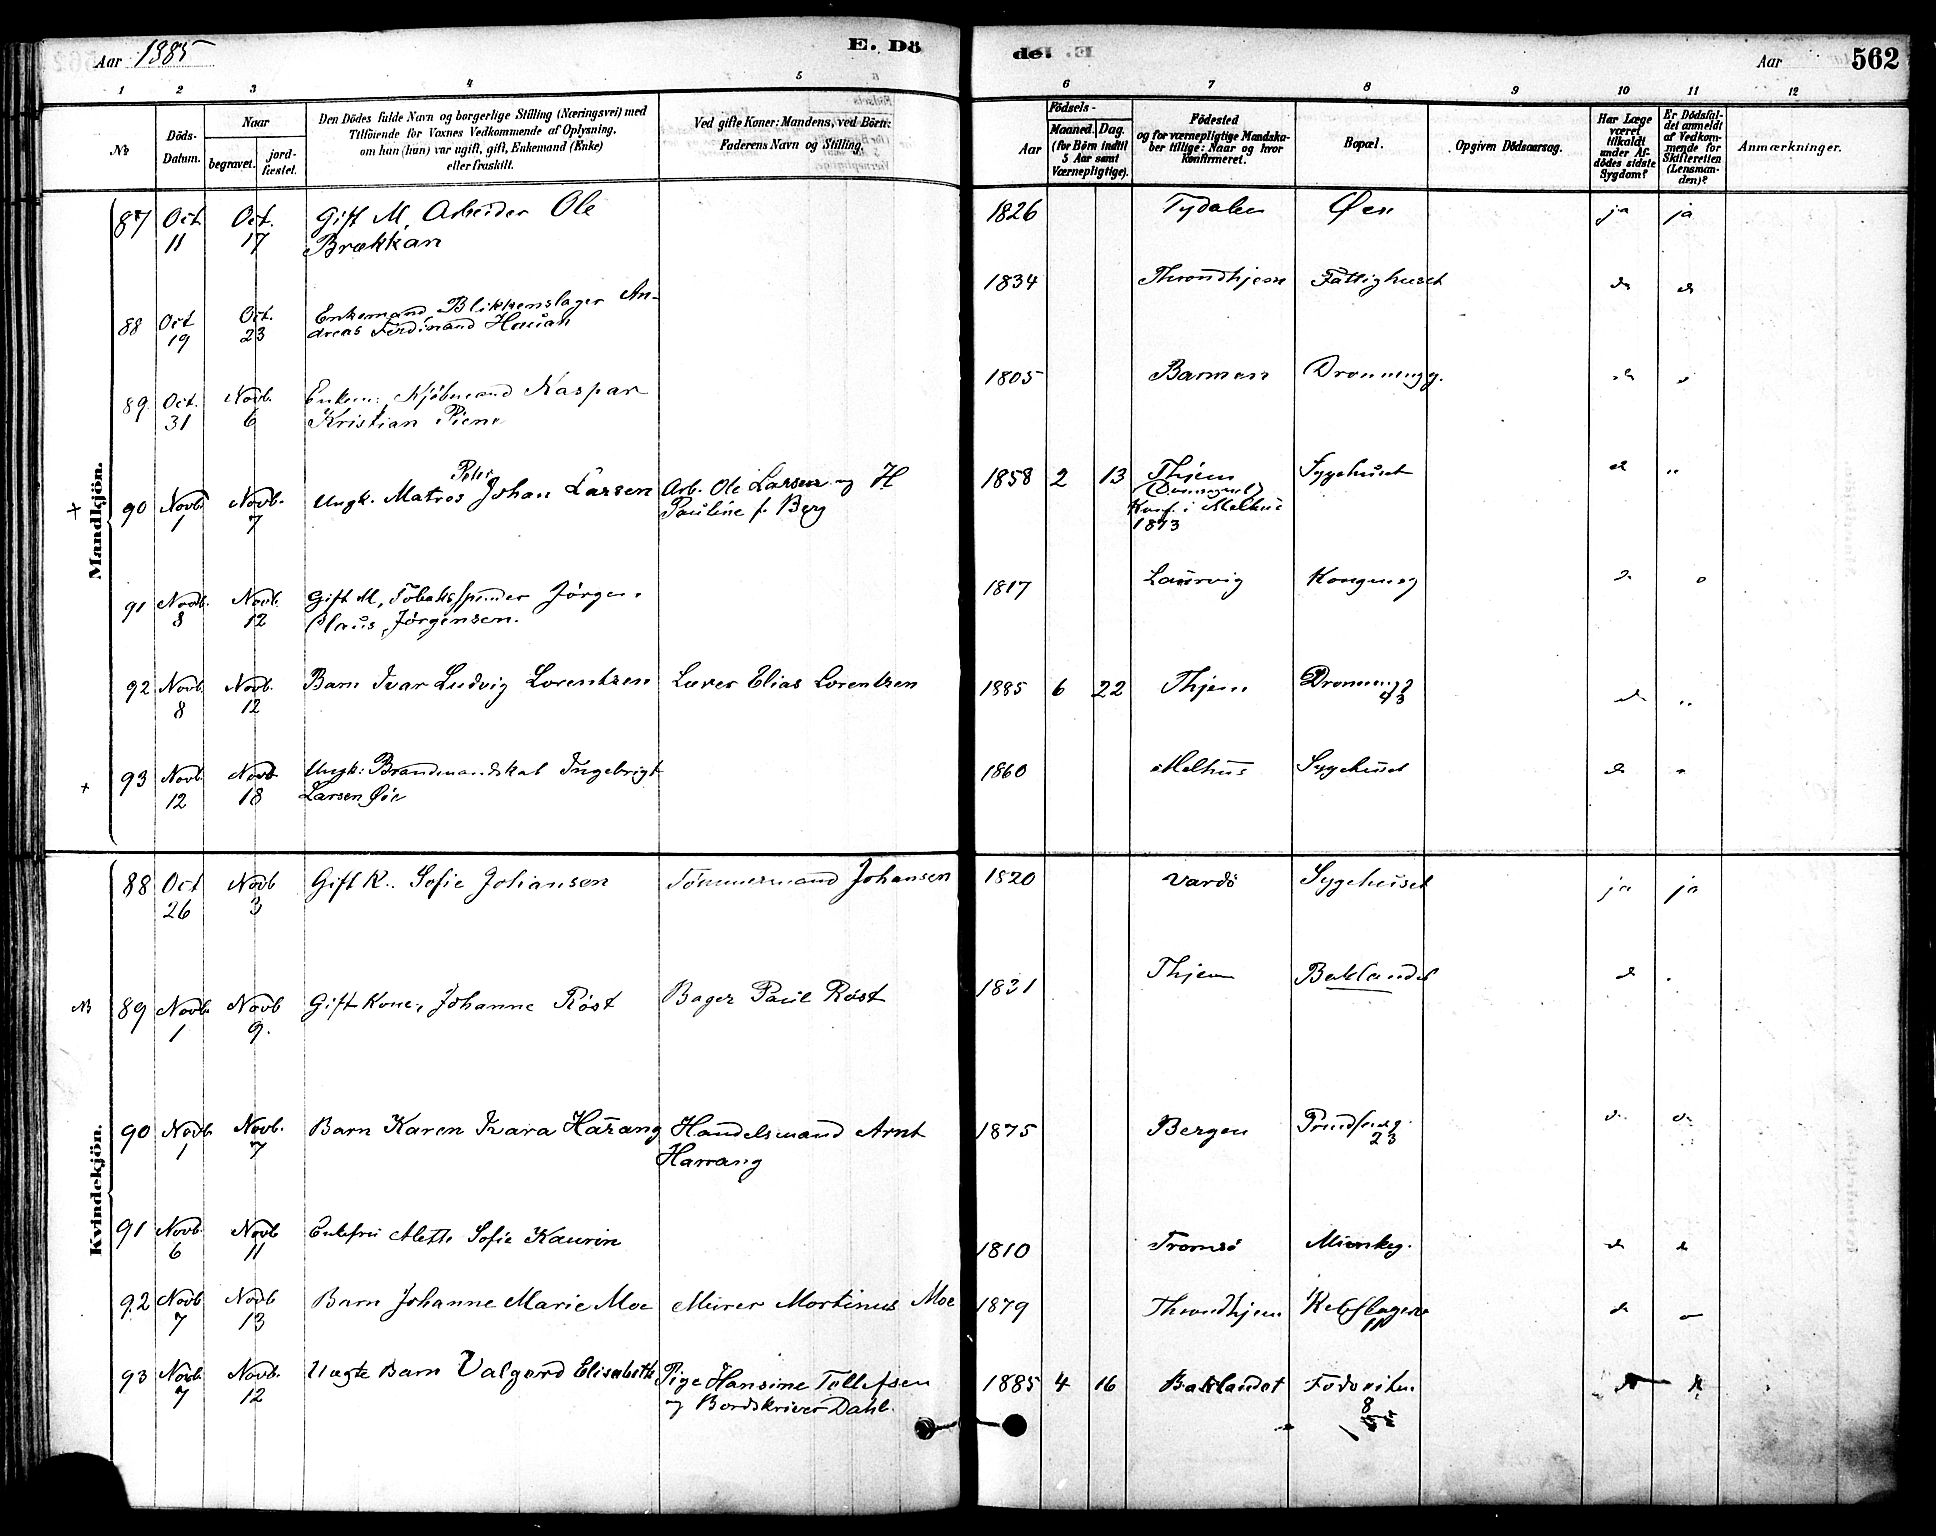 Aar 1885
E. Dö
de. E.
Aar
562
1 2 3 4 5 6 7 8 9 10 11 12
No
Döds-
Datum.
Naar
begravet.
jord-
fæstet.
Den Dödes fulde Navn og borgerlige Stilling (Næringsvei) med
Tilföiende for Voxnes Vedkommende af Oplysning.
om han (hun) var ugift, gift, Enkemand (Enke)
eller fraskilt.
Ved gifte Koner: Mandens, ved Börn:
Faderens Navn og Stilling.
Födsels-
Aar
Maaned. Dag.
(for Börn indtil
5 Aar samt
Værnepligtige).
Födested
og for værnepligtige Mandska-
ber tillige: Naar og hvor
konfirmeret.
Bopæl.
Opgiven Dödsaarsag.
Har Læge
været
tilkaldt
under Af-
dödes sidste
Sygdom?
Er Dödsfal-
det anmeldt
af Vedkom-
mende for
Skifteretten
(Lensman-
den)?
Anmærkninger.
Mandkjön.
87 Oct. Oct. Gift M, Arbeider Ole 1826 Tydalen Øen ja ja
11 17 Brækkan
88 Oct Oct. Enkemand, Blikkenslager An- 1834 Throndhjem Fattighuset do do
19 23 dreas Ferdinand
89. Oct. Novb. Enkem: Kjöbmand Kaspar 1805 Dronningg.
31 6 Kristian Piene
Peter
+ 90 Novb. Novb. Ungk. Matros Johan Larsen Arb. Ole Larsen og H 1858 2 13 Thjem Sygehuset
1 7 Pauline f. Berg
Konf. i Melhus
1873
91 Novb. Novb. Gift M, Tobaksspinder Jörgen 1817 Laurvig Kongensg
8 12 Claus Jörgensen.
92 Novb. Novb. Barn Ivar Ludvig Lorentzen Lærer Elias Lorentzen 1885 6 22 Thjem Dronningg
8 12 43
+ 93 Novb. Novb Ungk: Brandmandskab Ingebrigt 1860 Melhus Sygehuset
12 18 Larsen Øie
Kvindekjön.
88 Oct Novb Gift K.. Sofie Johansen Tömmermand Johansen 1820 Vardö Sygehuset ja ja
26 3
NB 89 Novb. Novb Gift Kone, Johanne Röst Bager Paul Röst 1831 Thjem Baklandet
1 9.
90 Novb. Novb. Barn Karen Kara Harang Handelsmand Arnt 1875 Bergen Prindsensg.
1 7 Harrang 23
91 Novb. Novb Enkefru Alette Sofie Kaurin 1810 Tromsö Munkeg.
6 11
92 Novb Novb Barn Johanne Marie Moe Murer Mortinus Moe 1879 Throndhjem
7 13 11
93 Novb. Novb. Uægte Barn Valgerd Elisabeth Pige Hansine Tollefsen 1885 4 16 Baklandet
7 12 og Bordskriver Dahl. 8